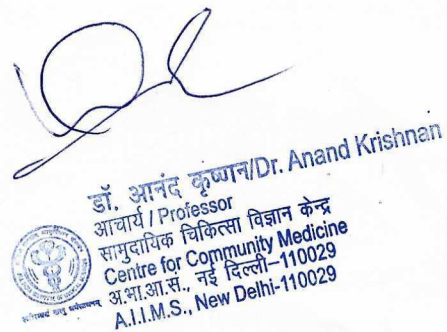 डॉ. आनंद कृष्णन/Dr. Anand Krishnan
आचार्य / Professor
सामुदायिक चिकित्सा विज्ञान केन्द्र
Centre for Community Medicine
अ.भा.आ.स., नई दिल्ली-110029
A.I.I.M.S., New Delhi-110029